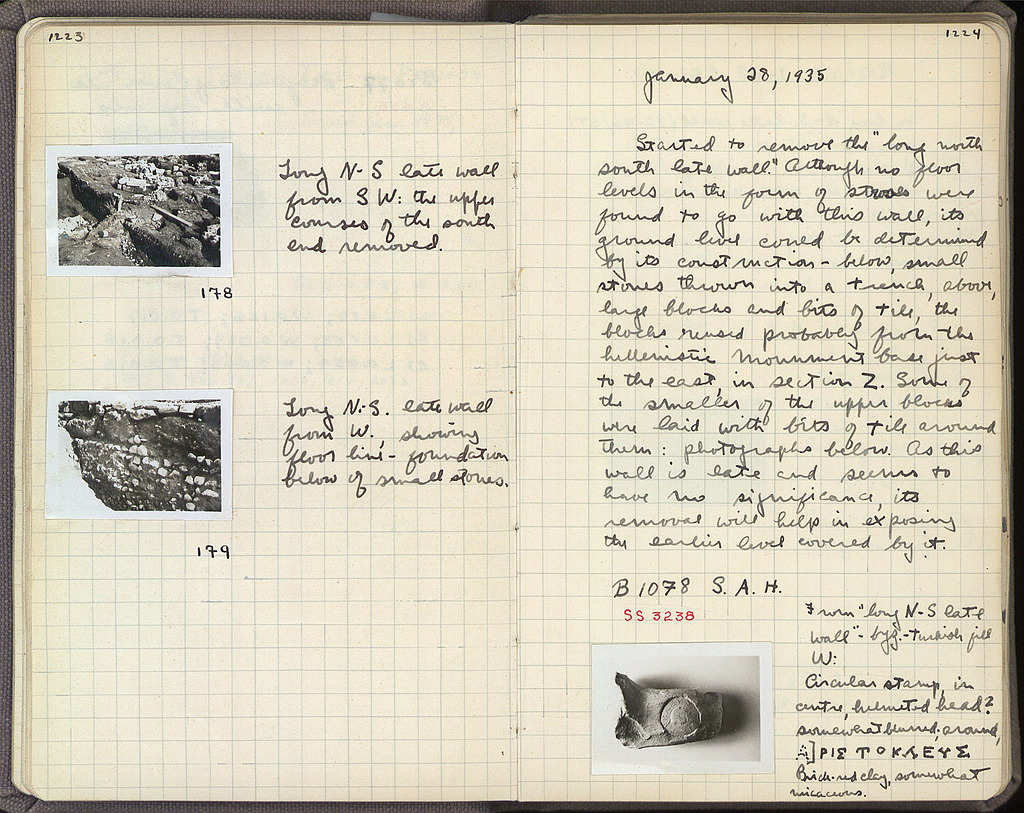 1223
Long N-S late wall
from SW: the upper
courses of the south
end removed.
178
Long N.-S. late wall
from W., showing
floor line - foundation
below of small stones.
179
1224
January 28, 1935
Started to remove the "long north
south late wall." Although no floor
levels in the form of stroses were
found to go with this wall, its
ground level could be determined
by its construction - below, small
stones thrown into a trench, above,
large blocks and bits of tile, the
blocks reused probably from the
hellenistic monument base just
to the east, in section Z. Some of
the smaller of the upper blocks
were laid with bits of tile around
them: photographs below. As this
wall is late and seems to
have no significance, its
removal will help in exposing
the earlier level covered by it.
B 1078 S. A. H.
SS 3238
From "long N-S late
wall" - byz.-Turkish fill
W:
Circular stamp, in
centre, helmeted head?
somewhat blurred; around,
]ΡΙΣΤΟΚΛΕΥΣ
Brick-red clay, somewhat
micaceous.